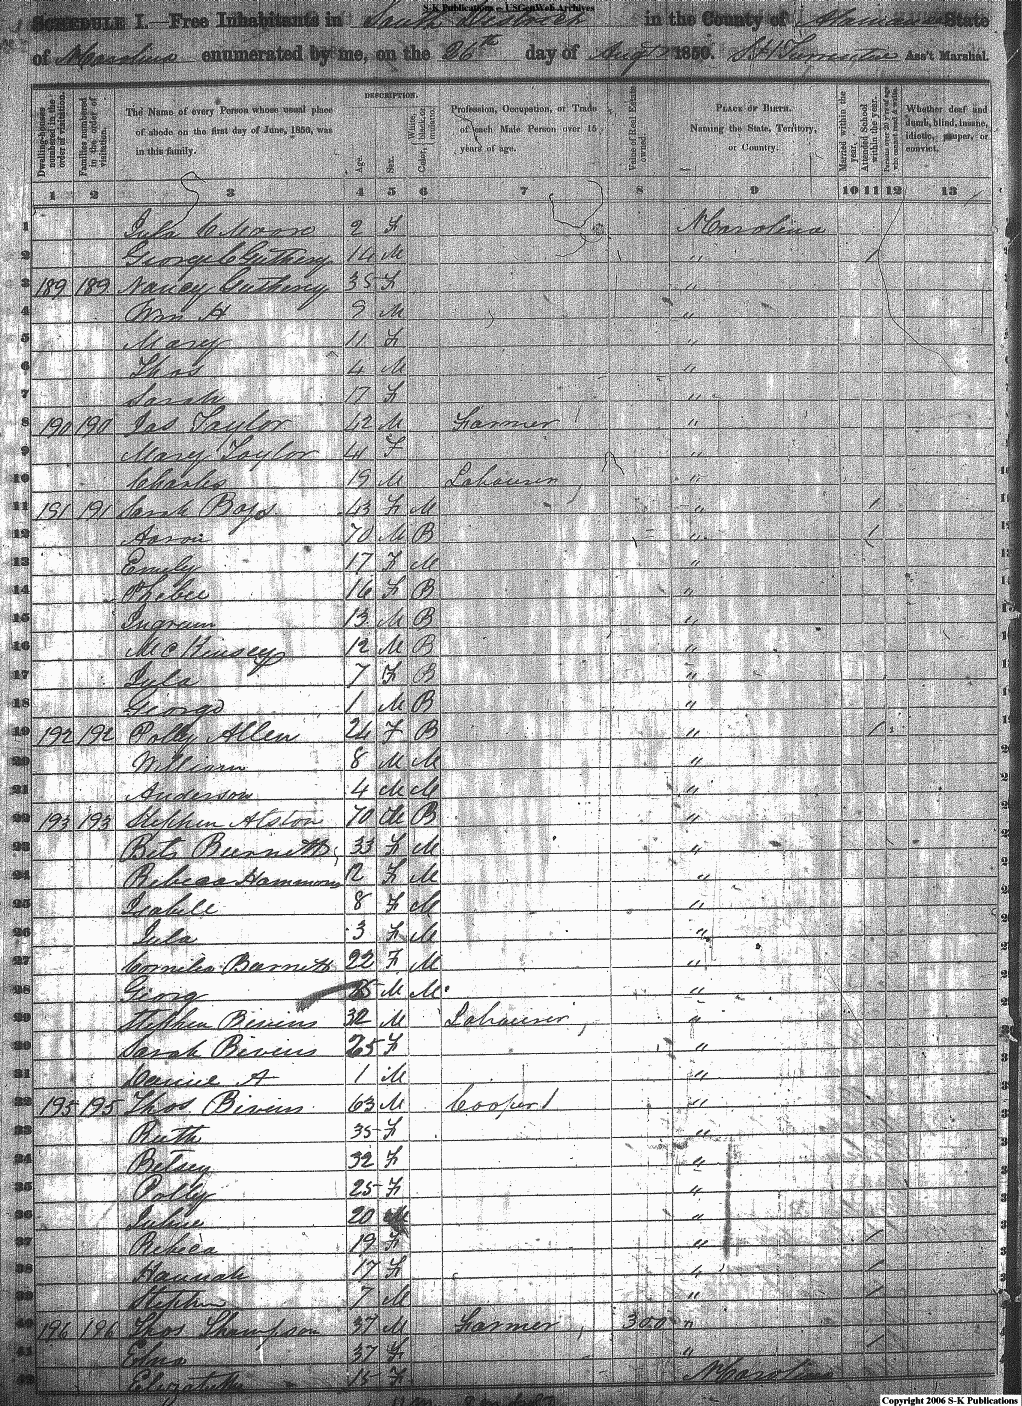 S-K Publications – USGenWeb Archives
SCHEDULE I.—Free Inhabitants in South District in the County of Alamance State
of N Carolina enumerated by me, on the 26th day of Augt 1850. Ass't Marshal.
Dwelling-houses numbered in the order of visitation.
Families numbered in the order of visitation.
The Name of every Person whose usual place of abode on the first day of June, 1850, was in this family.
DESCRIPTION.
Age.
Sex.
Color, White, black, or mulatto.
Profession, Occupation, or Trade of each Male Person over 15 years of age.
Value of Real Estate owned.
PLACE OF BIRTH. Naming the State, Territory, or Country.
Married within the year.
Attended School within the year.
Persons over 20 y'rs of age who cannot read & write.
Whether deaf and dumb, blind, insane, idiotic, pauper, or convict.
1 2 3 4 5 6 7 8 9 10 11 12 13
1 Moore 2 F N Carolina
2 George C Gutherey 14 M " /
3 189 189 Nancy Gutherey 35 F "
4 Wm H 9 M "
5 Mary 11 F "
6 Thos 4 M "
7 Sarah 17 F "
8 190 190 Jas Taylor 42 M Farmer "
9 Mary Taylor 41 F "
10 Charles 19 M "
11 191 191 Sarah 43 F M " /
12 Aaron 70 M B " /
13 Emily 17 F M "
14 Phebee 16 F B "
15 Ingram 13 M B "
16 McKinsey 12 M B "
17 7 F B "
18 George 1 M B "
19 192 192 Polly Allen 24 F B " /
20 William 8 M M "
21 Anderson 4 M M "
22 193 193 Stephen Alston 70 M B "
23 Bets Burnett 33 F M "
24 Rebeca Hammons 12 F M "
25 Isabell 8 F M "
26 3 F M "
27 Cornelia Barnett 22 F M "
28 Georg M M "
29 Stephen Bivins 32 M "
30 Sarah Bivens 25 F "
31 1 M "
32 195 195 Thos Bivins 63 M Cooper "
33 Ruth 35 F "
34 Betsey 32 F "
35 Polly 25 F "
36 20 "
37 Rebeca 19 F " /
38 Hannah 17 F " /
39 Stephen 7 M " /
40 196 196 Thos Thompson 37 M Farmer 300 "
41 Edna 37 F " /
42 Elizabeth 15 F N Carolina
Copyright 2006 S-K Publications